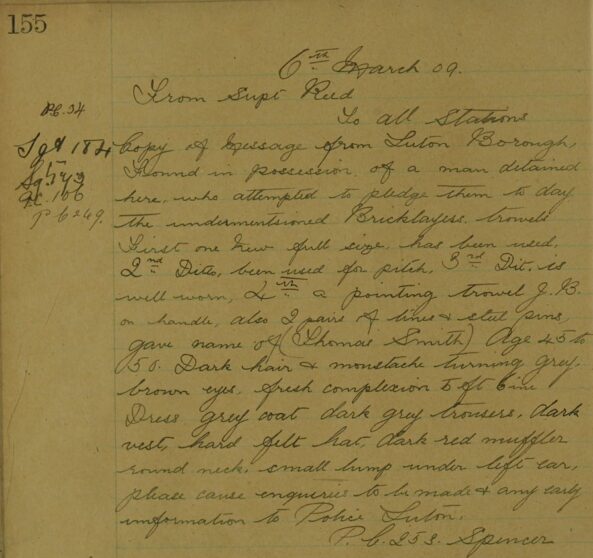 155
6th March 09.
From Supt Reed
To all Stations
P.C. 34
Sgt 184
Copy of Message from Luton Borough,
Found in possession of a man detained
Sgt 143
P.C. 166
here, who attempted to pledge them to day
P C 249.
the undermentioned Bricklayers trowels
First one New full size, has been used,
2nd Ditto, been used for pitch, 3rd Dit. is
well worn, 4th a pointing trowel J. B.
on handle, also 2 pairs of lines & steel pins
gave name of (Thomas Smith) Age 45 to
50. Dark hair & moustache turning grey,
brown eyes, fresh complexion 5 ft 6 ins
Dress grey coat dark grey trousers, dark
vest, hard felt hat, dark red muffler
round neck, small lump under left ear,
please cause enquiries to be made & any early
information to Police Luton.
P. C. 253. Spencer